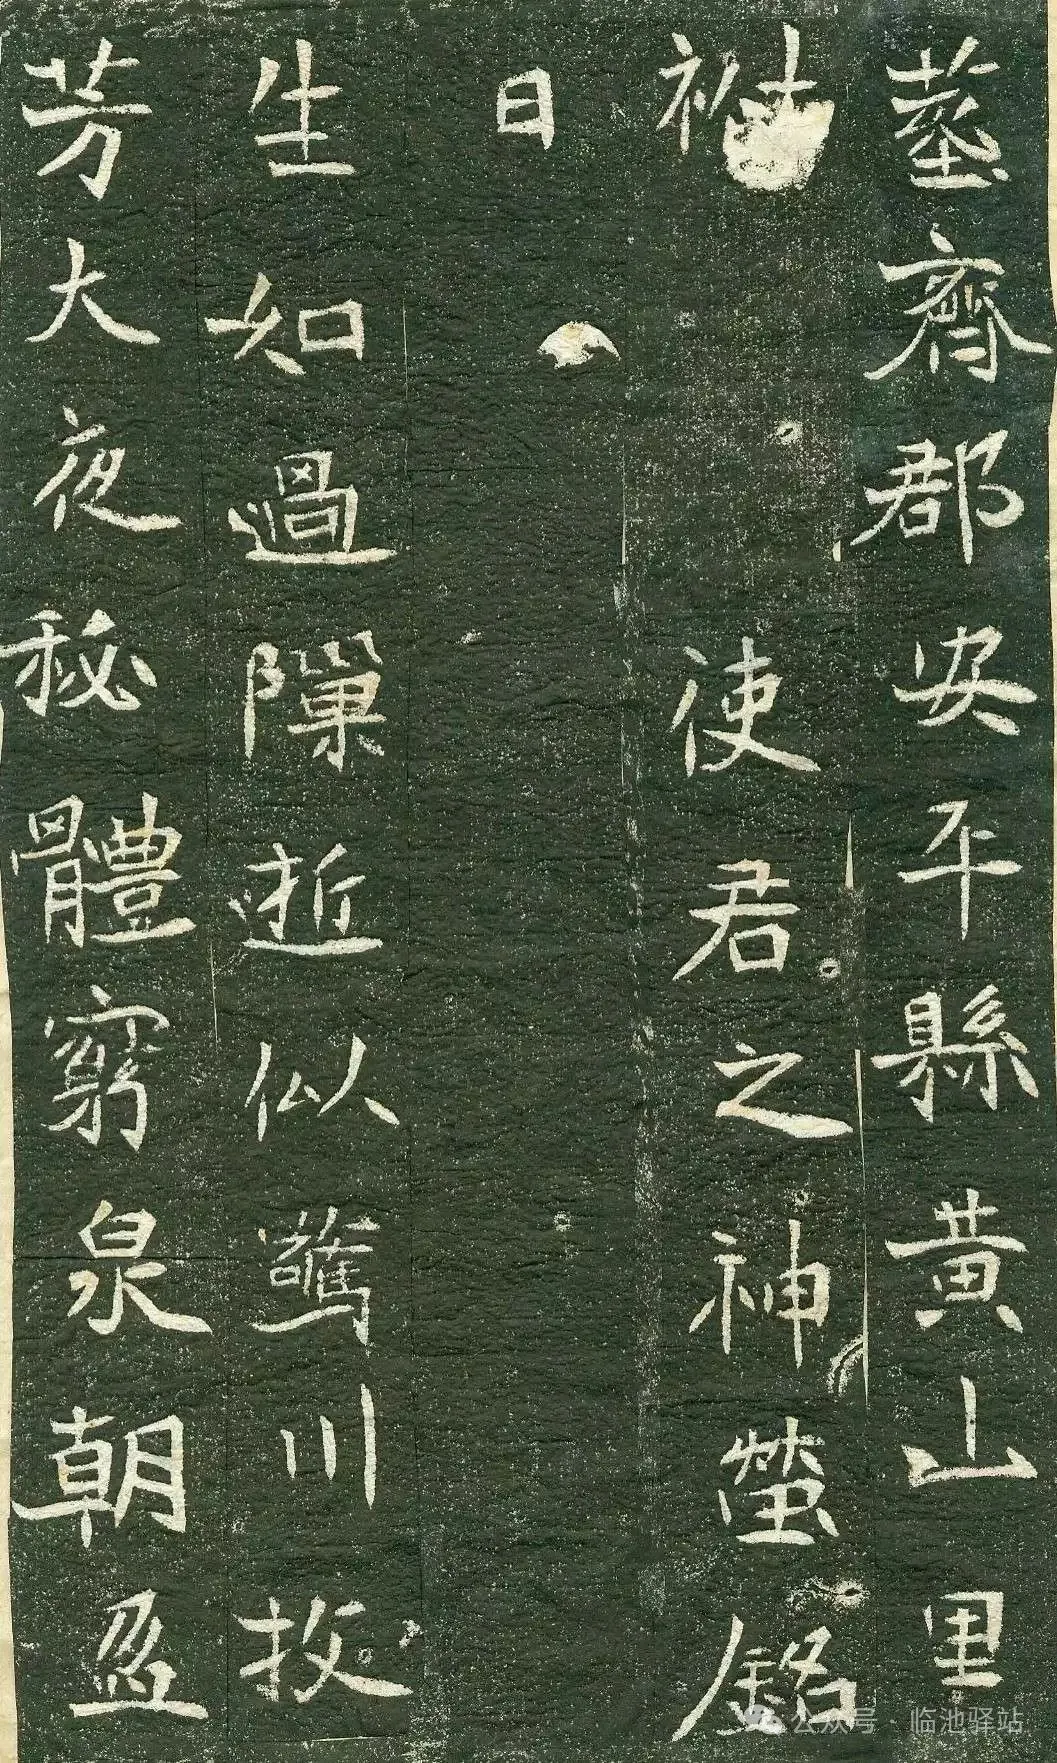 塟齊郡安平縣黄山里
使君之神塋銘
日
生如過隟逝似驚川收
芳大夜秘體窮泉朝盈
公众号 · 临池驿站